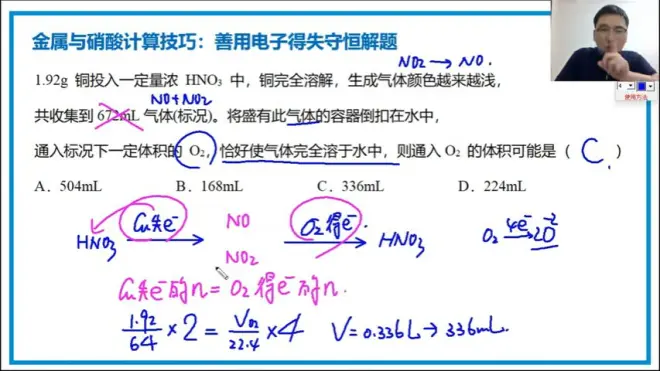 金属与硝酸计算技巧：善用电子得失守恒解题
NO2 → NO.
1.92g 铜投入一定量浓 HNO₃ 中，铜完全溶解，生成气体颜色越来越浅，
NO+NO2
共收集到 672mL 气体(标况)。将盛有此气体的容器倒扣在水中，
通入标况下一定体积的 O₂，恰好使气体完全溶于水中，则通入 O₂ 的体积可能是（ C. ）
A．504mL B．168mL C．336mL D．224mL
HNO3 Cu失e⁻ NO NO2 O2得e⁻. HNO3 O2 4e⁻→ 2O⁻²
Cu失e⁻的n = O2得e⁻的n.
1.92/64 × 2 = VO2/22.4 × 4 V = 0.336L → 336mL.
4
使用方法